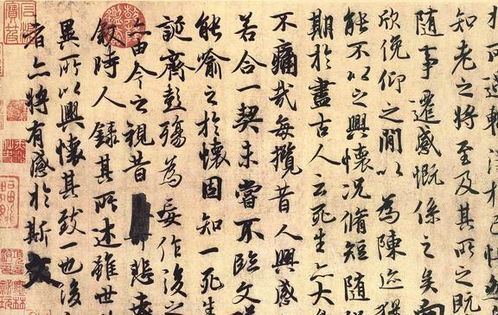 所遇蹔得於己怏然
知老之將至及其所之既
隨事遷感慨係之矣向
欣俛仰之閒以為陳迹猶
能不以之興懷況脩短隨
期於盡古人云死生亦大
不痛哉每攬昔人興感
若合一契未嘗不臨文嗟
能喻之於懷固知一死生
誕齊彭殤為妄作後之
由今之視昔悲夫
敘時人錄其所述雖世
異所以興懷其致一也後
者亦將有感於斯文